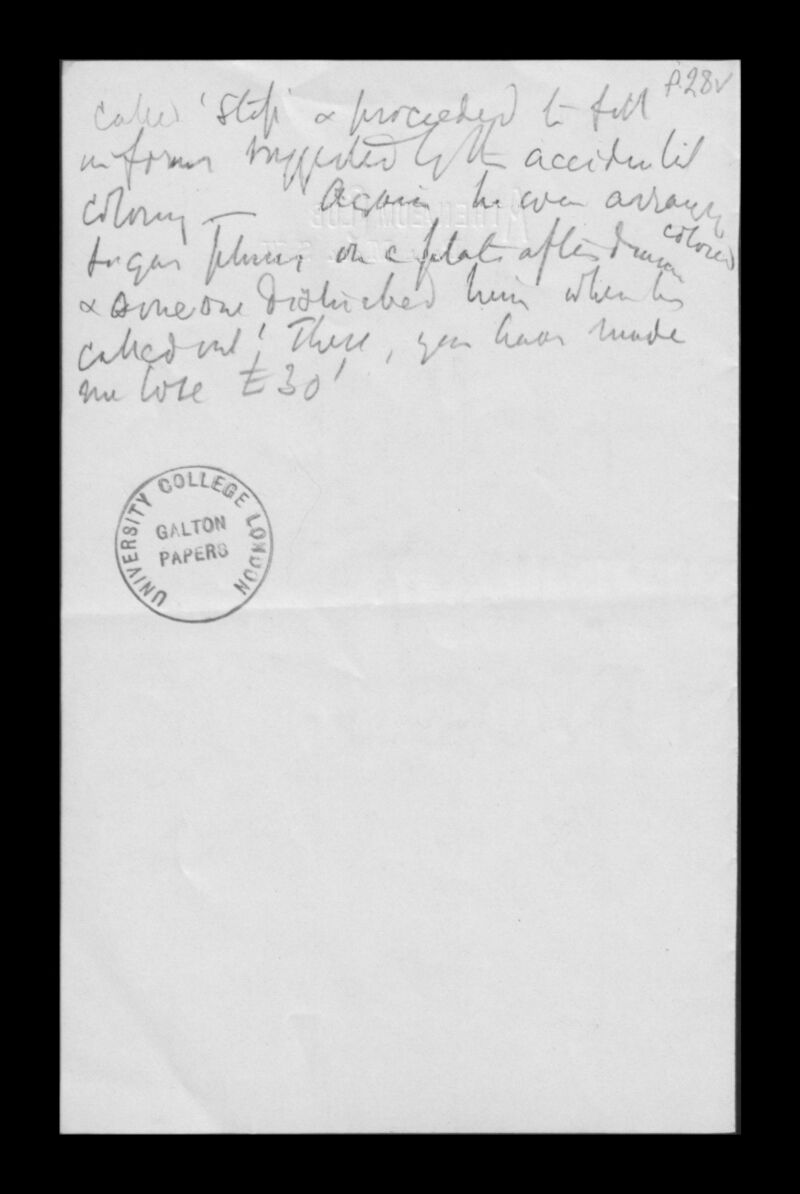 f28v
called 'Stop' & proceeded to fill
in forms suggested by the accidental
coloring — Again he was arranging
colored
sugar plums on a plate after dinner
& someone disturbed him when he
called out 'There, you have made
me lose £30'
UNIVERSITY COLLEGE LONDON
GALTON
PAPERS
ATHENÆUM CLUB